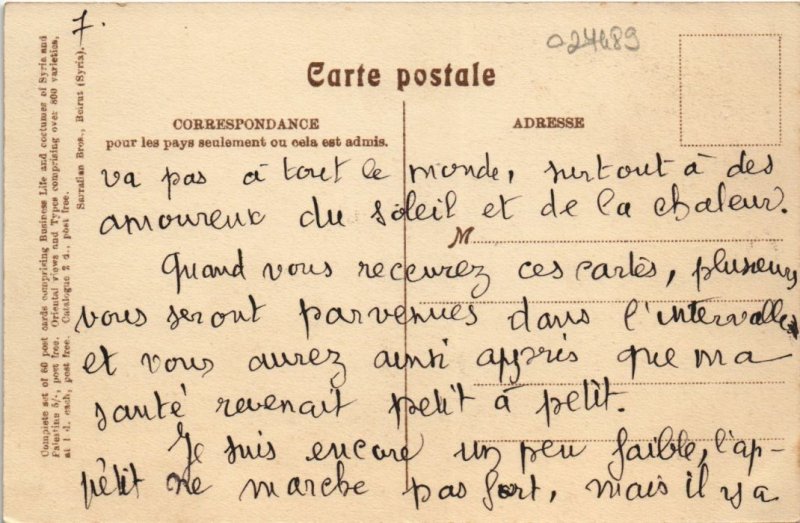 7.
024489
Carte postale
CORRESPONDANCE
pour les pays seulement ou cela est admis.
ADRESSE
Complete set of 60 post cards comprising Business Life and costumes of Syria and
Palestine 5/-, post free. Oriental views and Types comprising over 800 varieties,
at 1 d. each, post free. Catalogue 2 d., post free.
Sarrafian Bros., Beirut (Syria).
M
va pas à tout le monde, surtout à des
amoureux du soleil et de la chaleur.
Quand vous recevrez ces cartes, plusieurs
vous seront parvenues dans l'intervalle
et vous aurez ainsi appris que ma
santé revenait petit à petit.
Je suis encore un peu faible, l'ap-
pétit ne marche pas fort, mais il y a